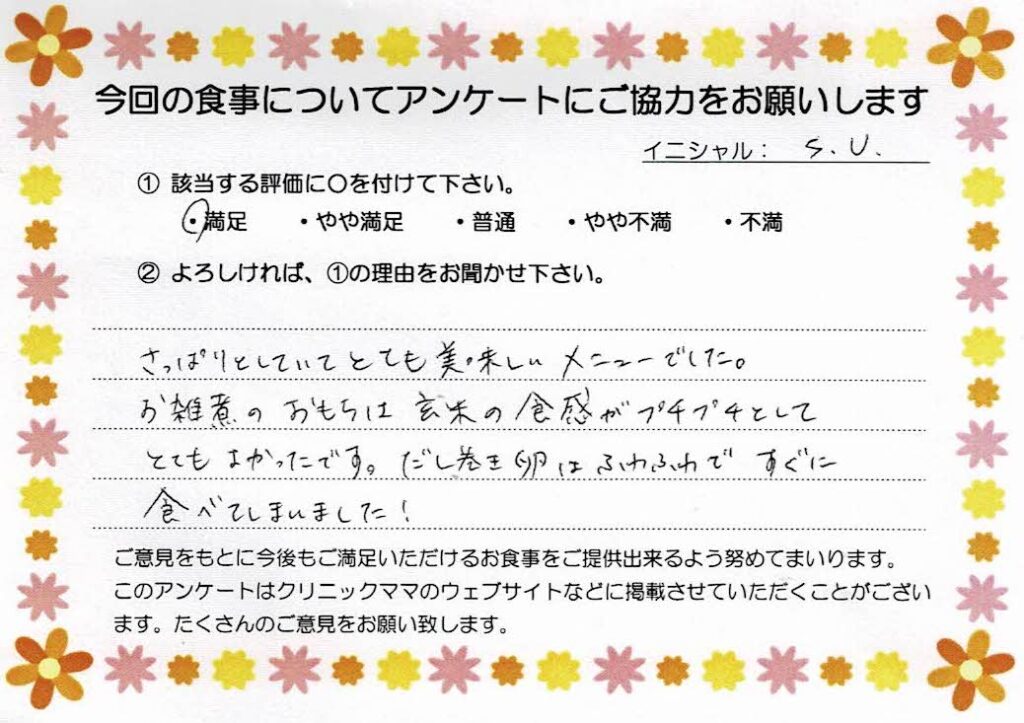 今回の食事についてアンケートにご協力をお願いします
イニシャル： S.U.
① 該当する評価に〇を付けて下さい。
・満足 ・やや満足 ・普通 ・やや不満 ・不満
② よろしければ、①の理由をお聞かせ下さい。
さっぱりとしていてとても美味しいメニューでした。
お雑煮のおもちは玄米の食感がプチプチとして
とてもよかったです。だし巻き卵はふわふわですぐに
食べてしまいました！
ご意見をもとに今後もご満足いただけるお食事をご提供出来るよう努めてまいります。
このアンケートはクリニックママのウェブサイトなどに掲載させていただくことがござい
ます。たくさんのご意見をお願い致します。